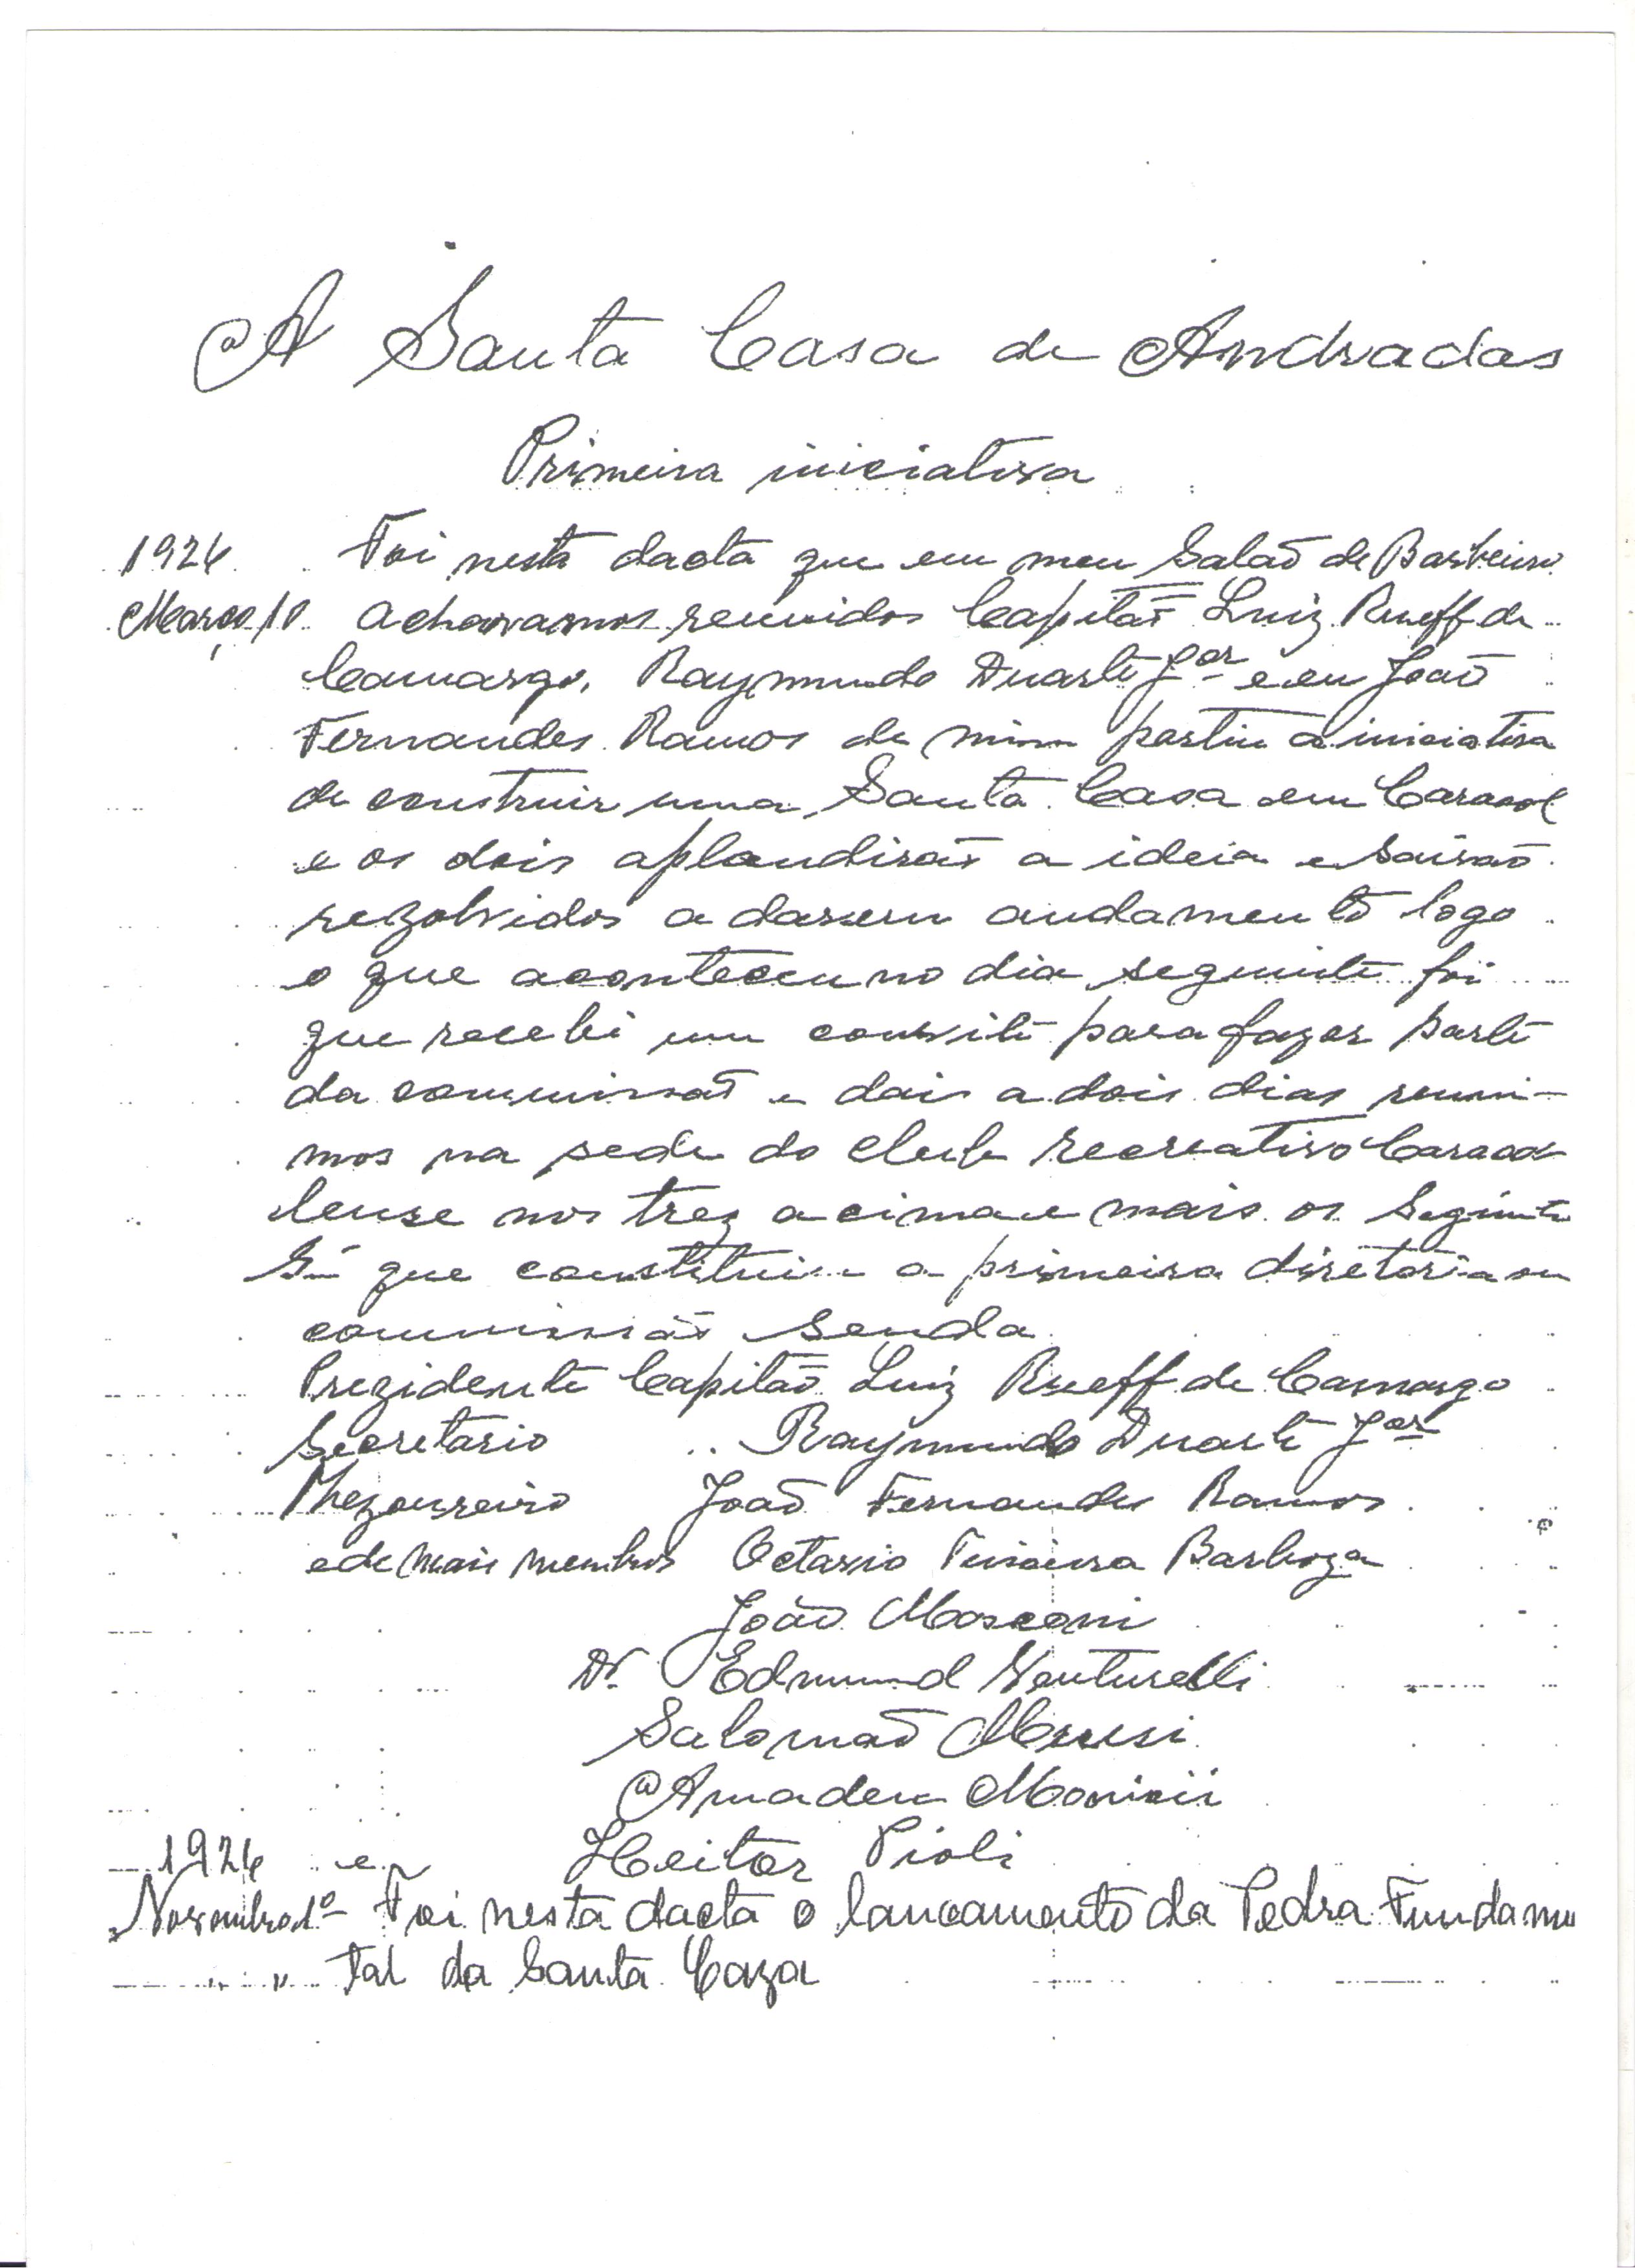 A Santa Casa de Andradas
Primeira iniciativa
1926 Foi nesta dacta que em meu Salaõ de Barbeiro
Março 10 achavamos reunidos Capitaõ Luiz Rueff de
Camargo, Raymundo Duarte Jor e eu Joaõ
Fernandes Ramos de mim partiu a iniciativa
de construir uma Santa Casa em Caracol
e os dois aplaudiraõ a ideia e Sairaõ
rezolvidos a darem andamento logo
o que aconteceu no dia seguinte foi
que recebi um convite para fazer parte
da commissaõ e dais a dois dias reuni-
mos na sede do Club recreativo Caracol
lense nos trez acima e mais os Seguinte
Sn que constituiu a primeira diretoria ou
commissaõ Sendo
Prezidente Capitaõ Luiz Rueff de Camargo
Secretario .. Raymundo Duarte Jor
Thezoureiro Joaõ Fernandes Ramos
e de mais membros Octavio Teixeira Barboza
Joaõ Mosconi
Dr. Edmund Venturelli
Salomaõ Mussi
Amadeu
1926 e Heitor Pioli
Novembro 1º Foi nesta dacta o lancamento da Pedra Fundame
" " tal da Santa Caza